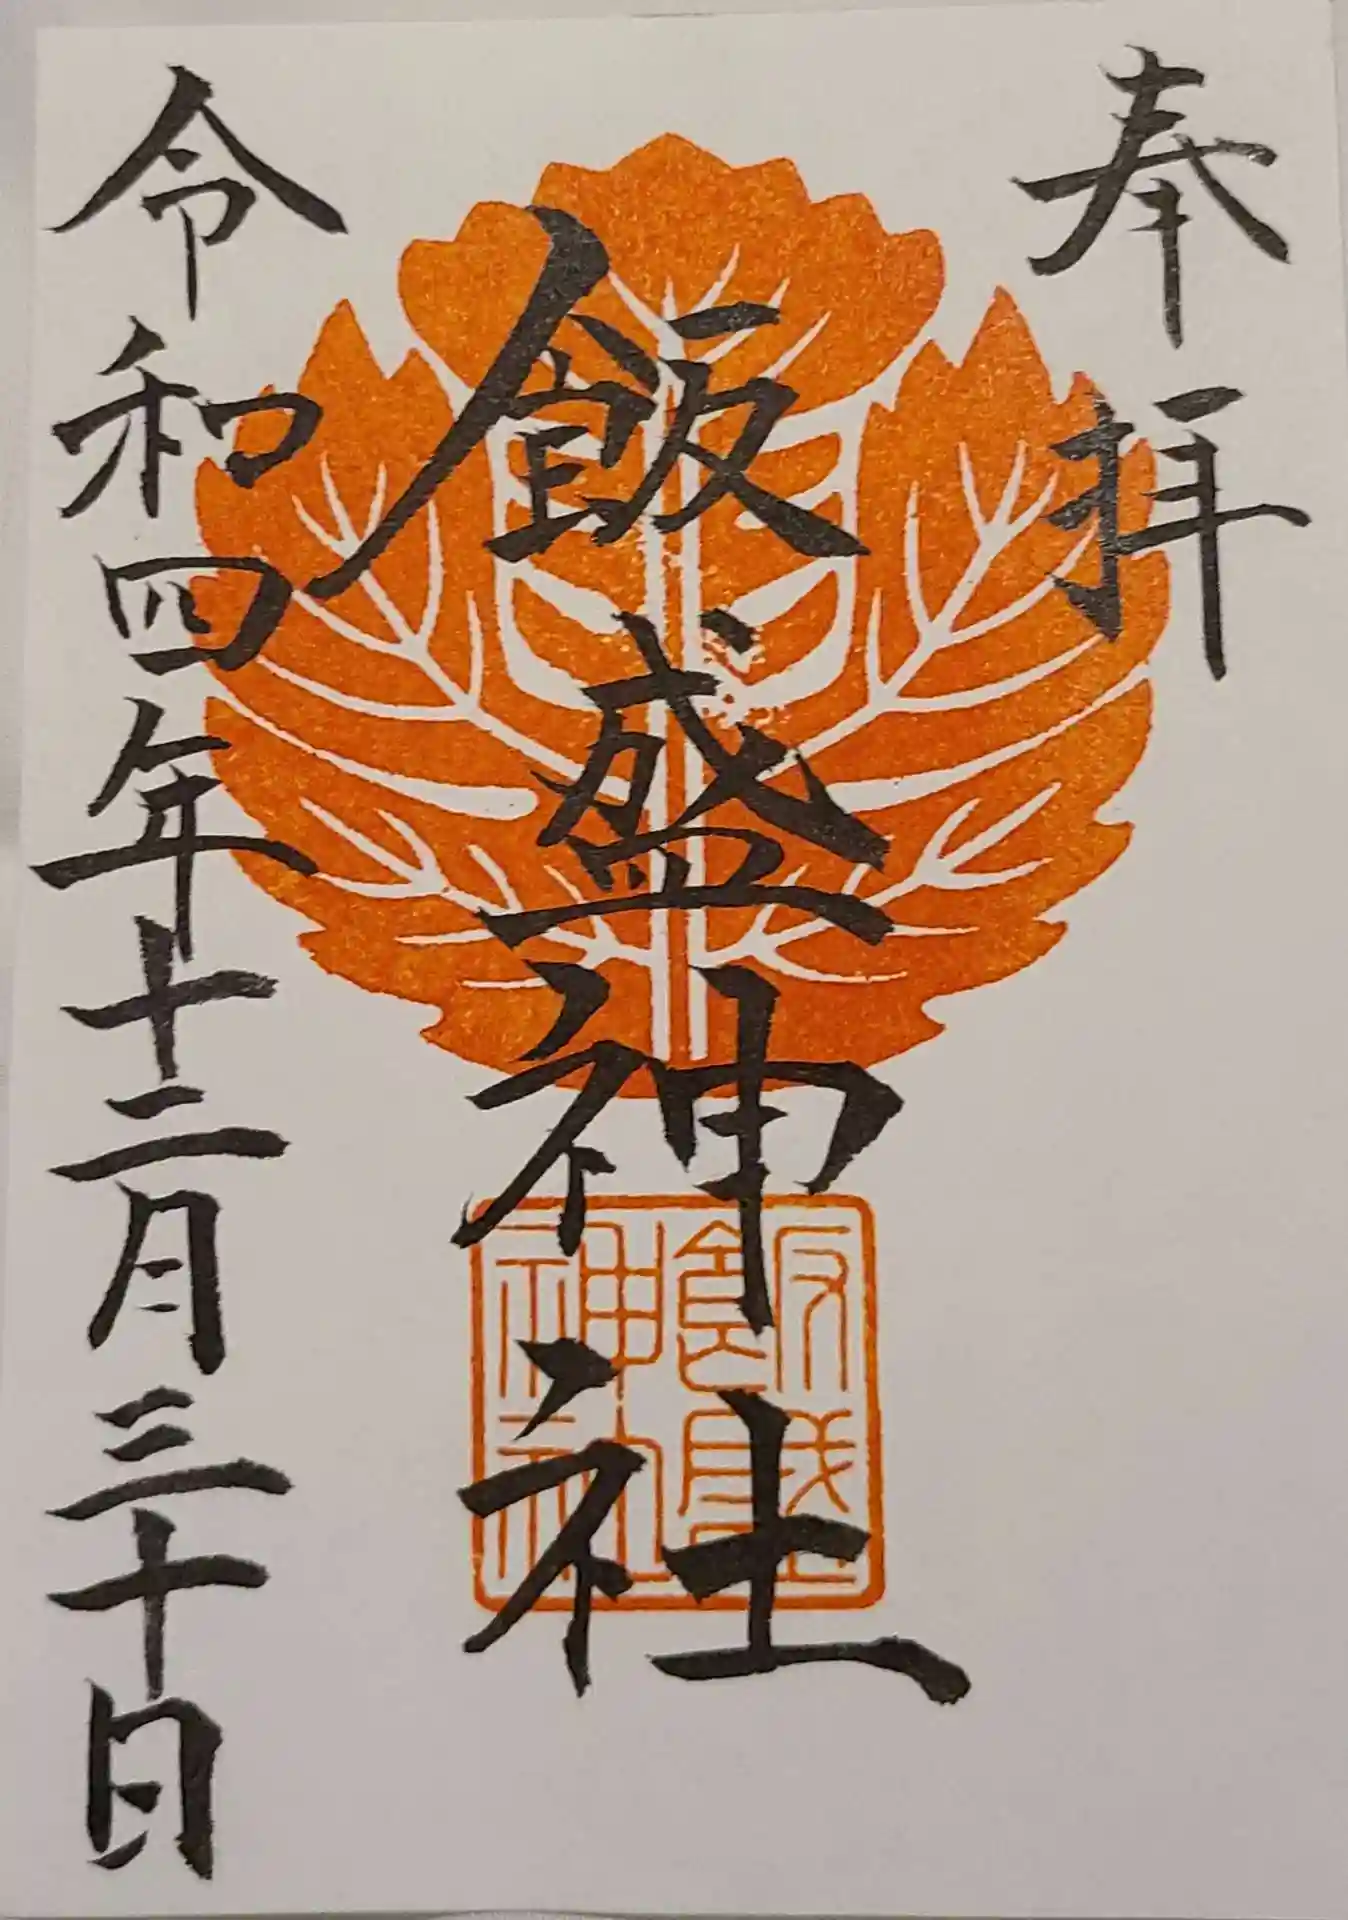 奉拝
飯盛神社
飯盛
神社
令和四年十二月三十日